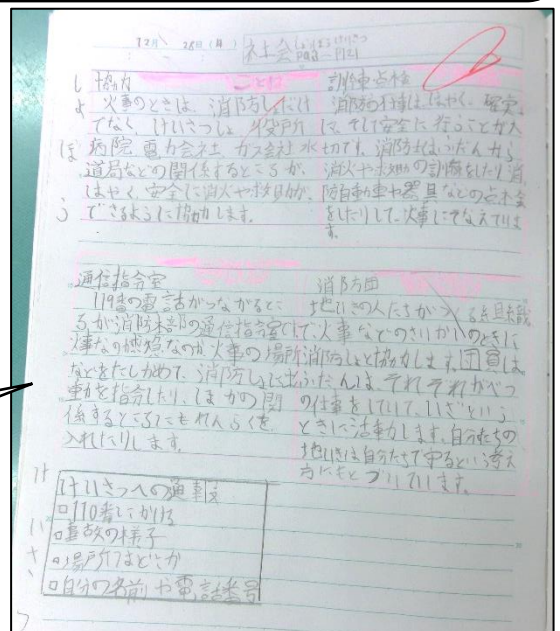 12月 28日(月) 社会 しょうぼうとけいさつ
P99~P121
しょうぼう
協力
火事のときは、消防しょだけ
でなく、けいさつしょ、役所
病院 電力会社 ガス会社 水
道局などの関係するところが、
はやく、安全に消火や救助が
できるように協力します。
訓練と点検
消防の仕事は、はやく、確実
に、そして安全に行うことが大
切です。消防しょは、ふだんから
消火や救助の訓練をしたり、消
防自動車や器具などの点検
をしたりして、火事にそなえていま
す。
通信指令室
119番の電話がつながるとこ
ろが消防本部の通信指令室で
火事なのか 火事の場所
などをたしかめて、消防しょに出
動を指令したり、ほかの関
係するところにもれんらくを
入れたりします。
消防団
地いきの人たちがつくる組織
火事などのさいがいのときに
消防しょと協力します。団員は
ふだんは、それぞれがべつ
の仕事をしていて、いざという
ときに活動します。自分たちの
地いきは自分たちで守るという考え
方にもとづいています。
けいさつ
けいさつへの通報
110番にかける
事故の様子
場所はどこか
自分の名前や電話番号